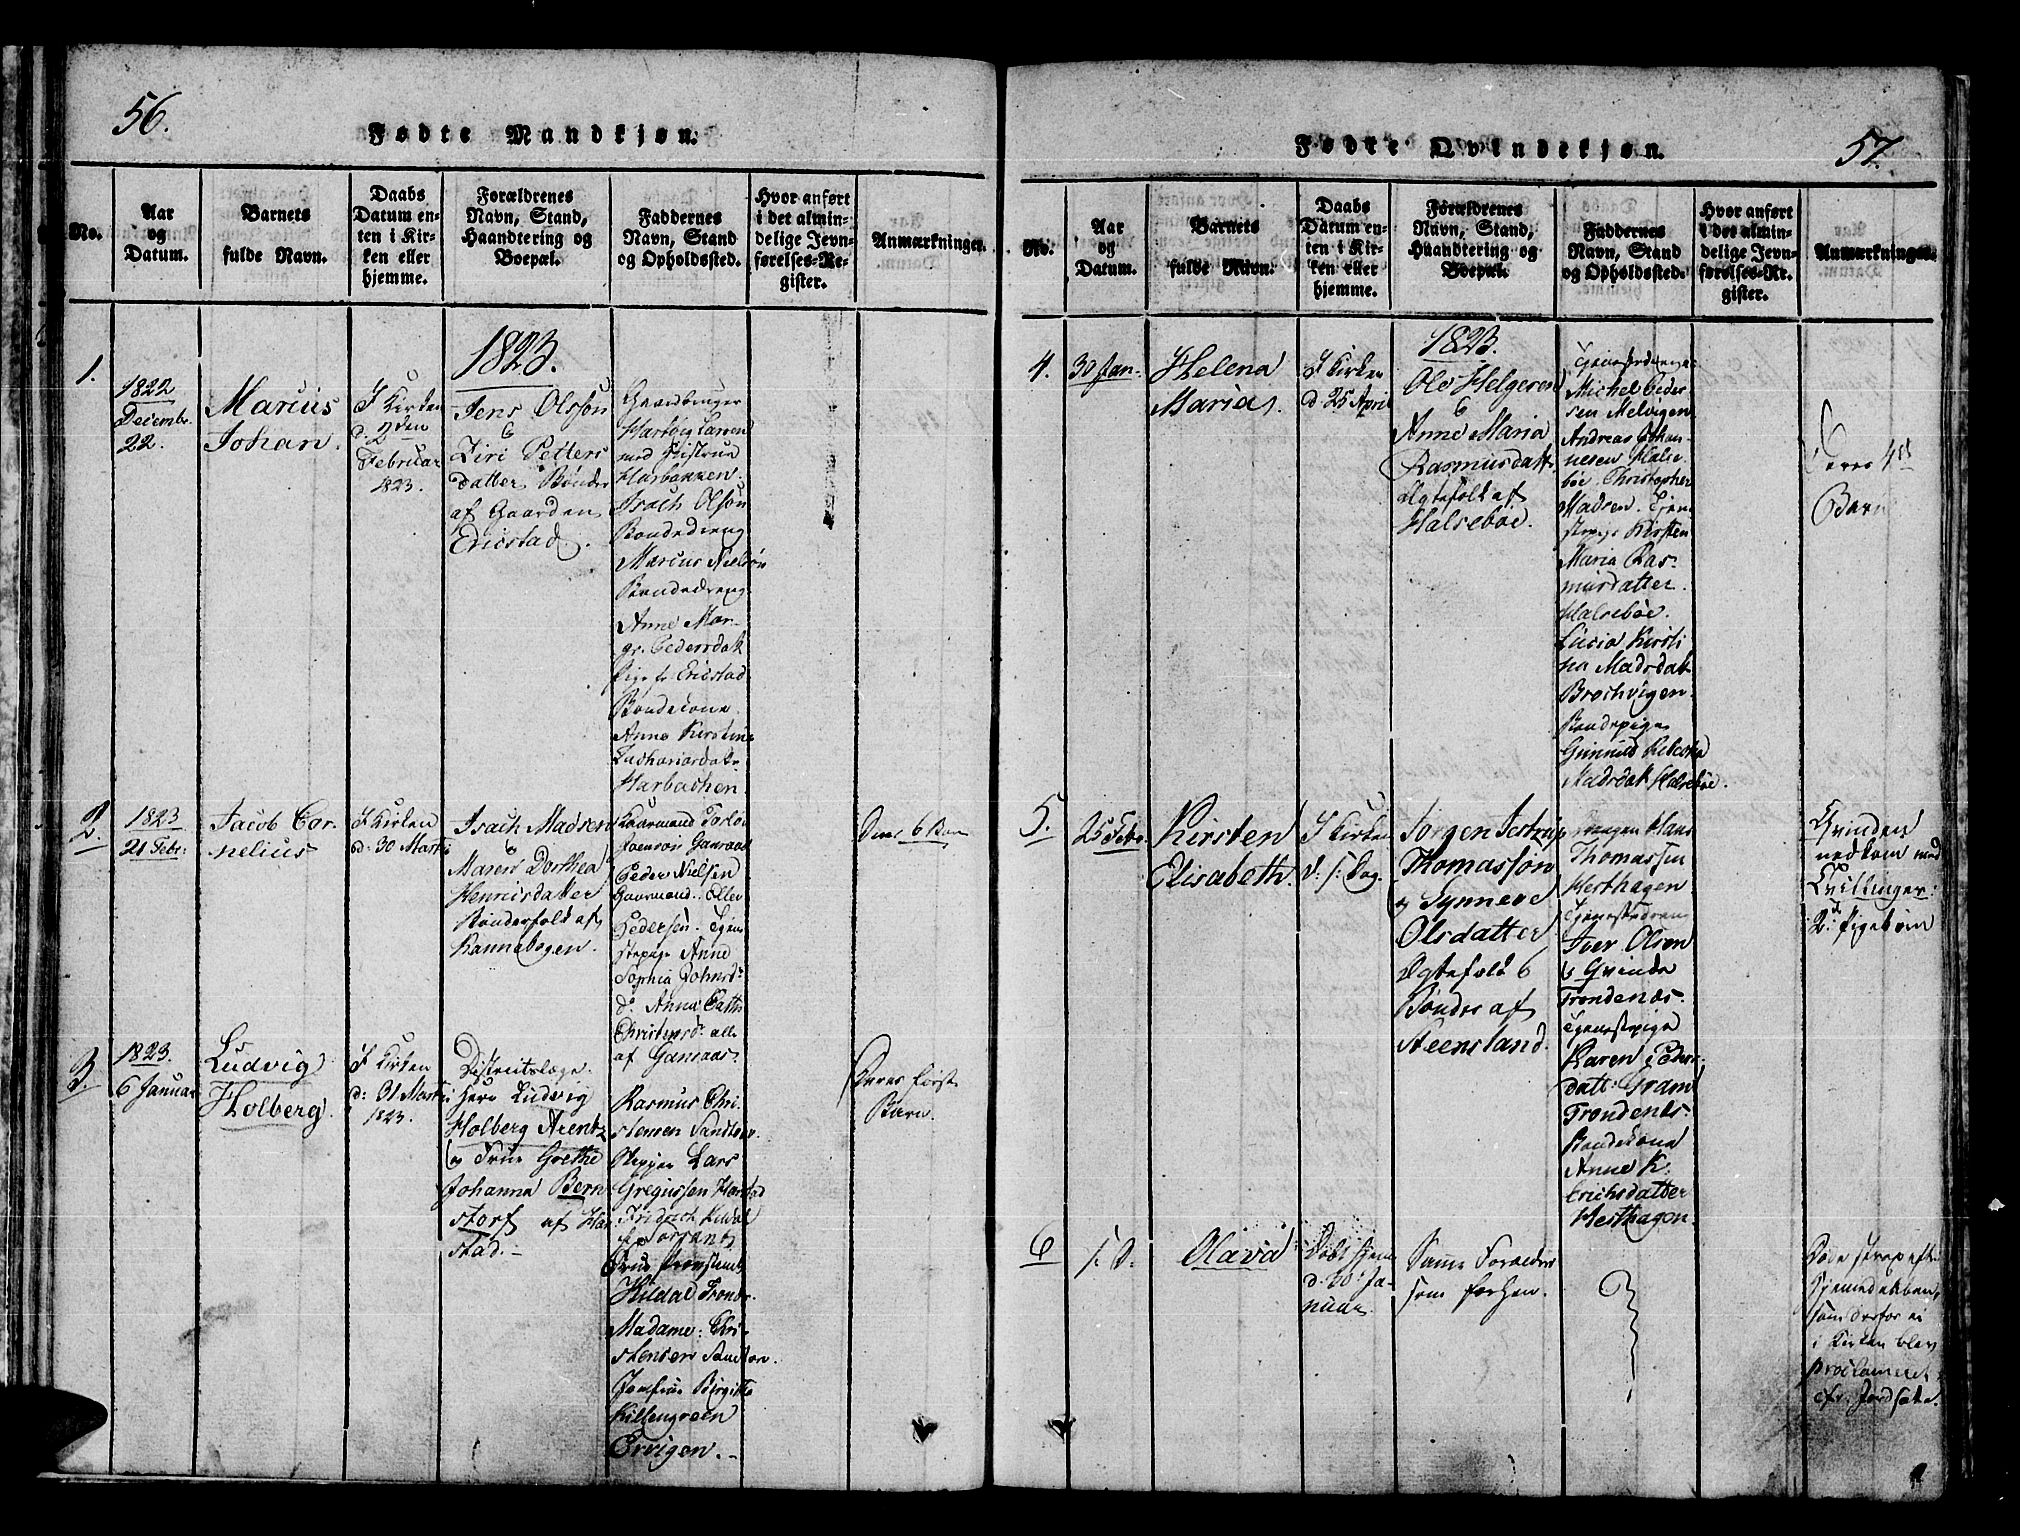 56.
Fødte Mandkjøn.
No.
Aar
og
Datum.
Barnets
fulde Navn.
Daabs
Datum en-
ten i Kir-
ken eller
hjemme.
Forældrenes
Navn, Stand,
Haandtering og
Boepæl.
Faddernes
Navn, Stand
og Opholdssted.
Hvor anført
i det almin-
delige Jevn-
førelses-Re-
gister.
Anmærkninger.
1823.
1.
1822
Decembr.
22.
Marcus
Johan.
I Kirken
d: 2den
Februar
1823.
Jens Olsson
Siri Petters
datter Bønder
af Gaarden
Ericstad.
Hartvig Larsen
Harbakken.
Isach Olsøn
Bondedreng
Marcus Nielsøn
Bondedreng
Anne Mar-
gr. Pedersdat
Pige fr Ericstad
Bondekone
Anne Kirstine
Zachariasdatr
Harbachen.
2.
1823
21 Febr:
Jacob Cor-
nelius
I Kirken
d: 30 Marti
Isach Madsen
Maren Dorthea
Henricsdatter
Bønderfolk af
Kannebogen.
Gaarmand
Peder Nielsen
Gaarmand. Eller
Pedersen. Tjene
stepige Anne
Sophia Johnsd:
Anna Cath:
Christensd: alle
af Gansaas.
Deres 6 Barn
3.
1823.
6 Januar
Ludvig
Holberg.
I Kirken
d: 31 Marti
1823.
Districtslæge
Herr Ludvig
Holberg Arentz
og Frue Grethe
Johanna Bern
storf af Har
stad.-
Rasmus Chri-
stensen Sandtorv.
Skipper Lars
Gregussen Harstad
Friderich Kildal
Frue
Kildal Trondr.
Madame: Chri-
stensen Sandtorv.
Jomfrue Birgitte
Killengreen
Ervigen.-
Deres først
Barn.
57.
Fødte Qvindekjøn.
No.
Aar
og
Datum.
Barnets
fulde Navn.
Daabs
Datum en-
ten i Kir-
ken eller
hjemme.
Forældrenes
Navn, Stand,
Haandtering og
Boepæl.
Faddernes
Navn, Stand
og Opholdssted.
Hvor anført
i det almin-
delige Jevn-
førelses-Re-
gister.
Anmærkninger.
1823.
4.
30 Jan.
Helena
Maria.
I Kirken
d. 25 April
Ole Helgesen
Anne Maria
Rasmusdatt
Ægtefolk af
Halsebøe.
Tjenestedrenge
Michel Peder
sen Melvigen
Andreas Johan-
nesen Halse-
bøe. Christopher
Madsen. Tjene
stepige Kirsten
Maria Ras-
musdatter.
Halsebøe.
Lucia Kirsti
na Madsdat
Brochvigen.
Bondepige
Gunnild Rebecka
Madsdat Halsebøe.
Deres 4de
Barn
5.
25 Febr.
Kirsten
Elisabeth.
I Kirken
d: s: Dag.
Jørgen Jestrup
Thomassøn
og Synneve
Olsdatter
Ægtefolk &
Bønder af
Steensland.
Hans
Thomassen
Hesthagen
Tjenestedreng
Iver Olsøn
og Qvinde
Trondenæs.
Tjenestepige
Karen Peder
datt: Gram
Trondenæs.
Bondekona
Anne K.
Erichsdatter
Hesthagen.
Qvinden
nedkom med
Tvillinger:
2de Pigebørn
6
s: D.
Olava
Døbt hjem
d. 20: Ja-
nuar.
Samme Forældre
som forhen.
Døde strax efter
Hjemmedaaben,
som derfor ei
i Kirken blev
proclameret,
cfr: Jordsatte.